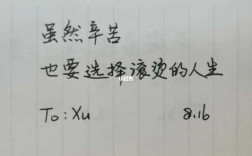 虽然辛苦
也要选择滚烫的人生
To: Xu 8.16